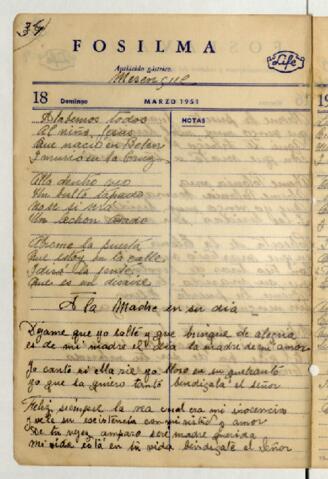 FOSILMA
Aperiódico gástrico.
Life
18 Domingo MARZO 1951
NOTAS
19
Alabemos todos
Al niño Jesus
Que nacio en Belen
I murio en la Cruz
Alla dentro veo
Un bulto tapado
No se si sera
Un lechon asado
Abreme la puerta
Que estoy en la calle
I dira la gente
Que es un desaire
A la Madre en su dia
Dejame que yo salte y que brinque de alegria
es de mi madre el dia la madre de mi amor
Yo canto si ella rie yo lloro en su quebranto
yo que la quiero tanto bendigala el señor
Feliz siempre la vea cual era mi inocencia
su existencia con mi niño y amor
De tu vejez amparo sere madre querida
mi vida está en tu vida bendigate el señor